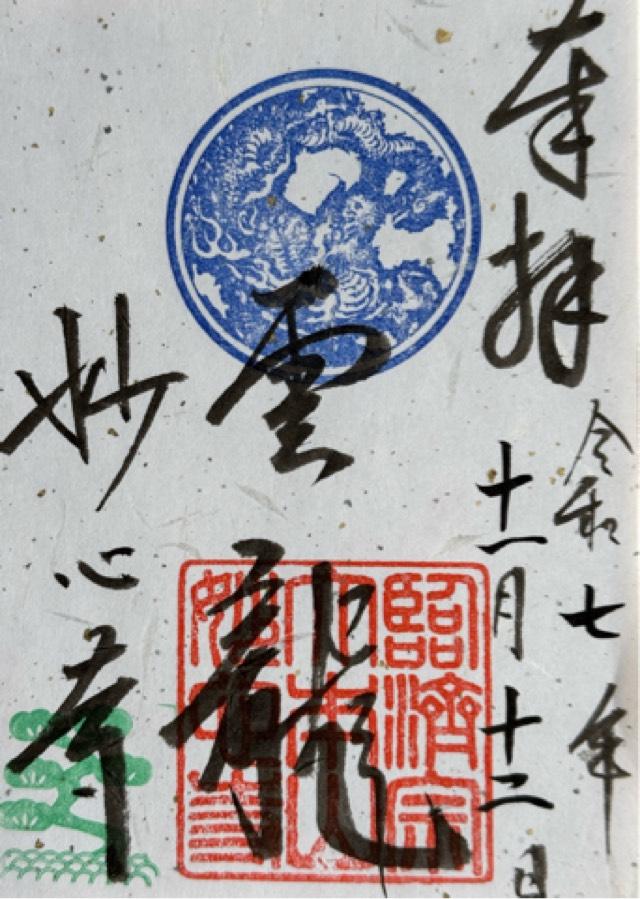 奉拝
令和七年
十一月十二日
雲龍
妙心寺
臨濟宗